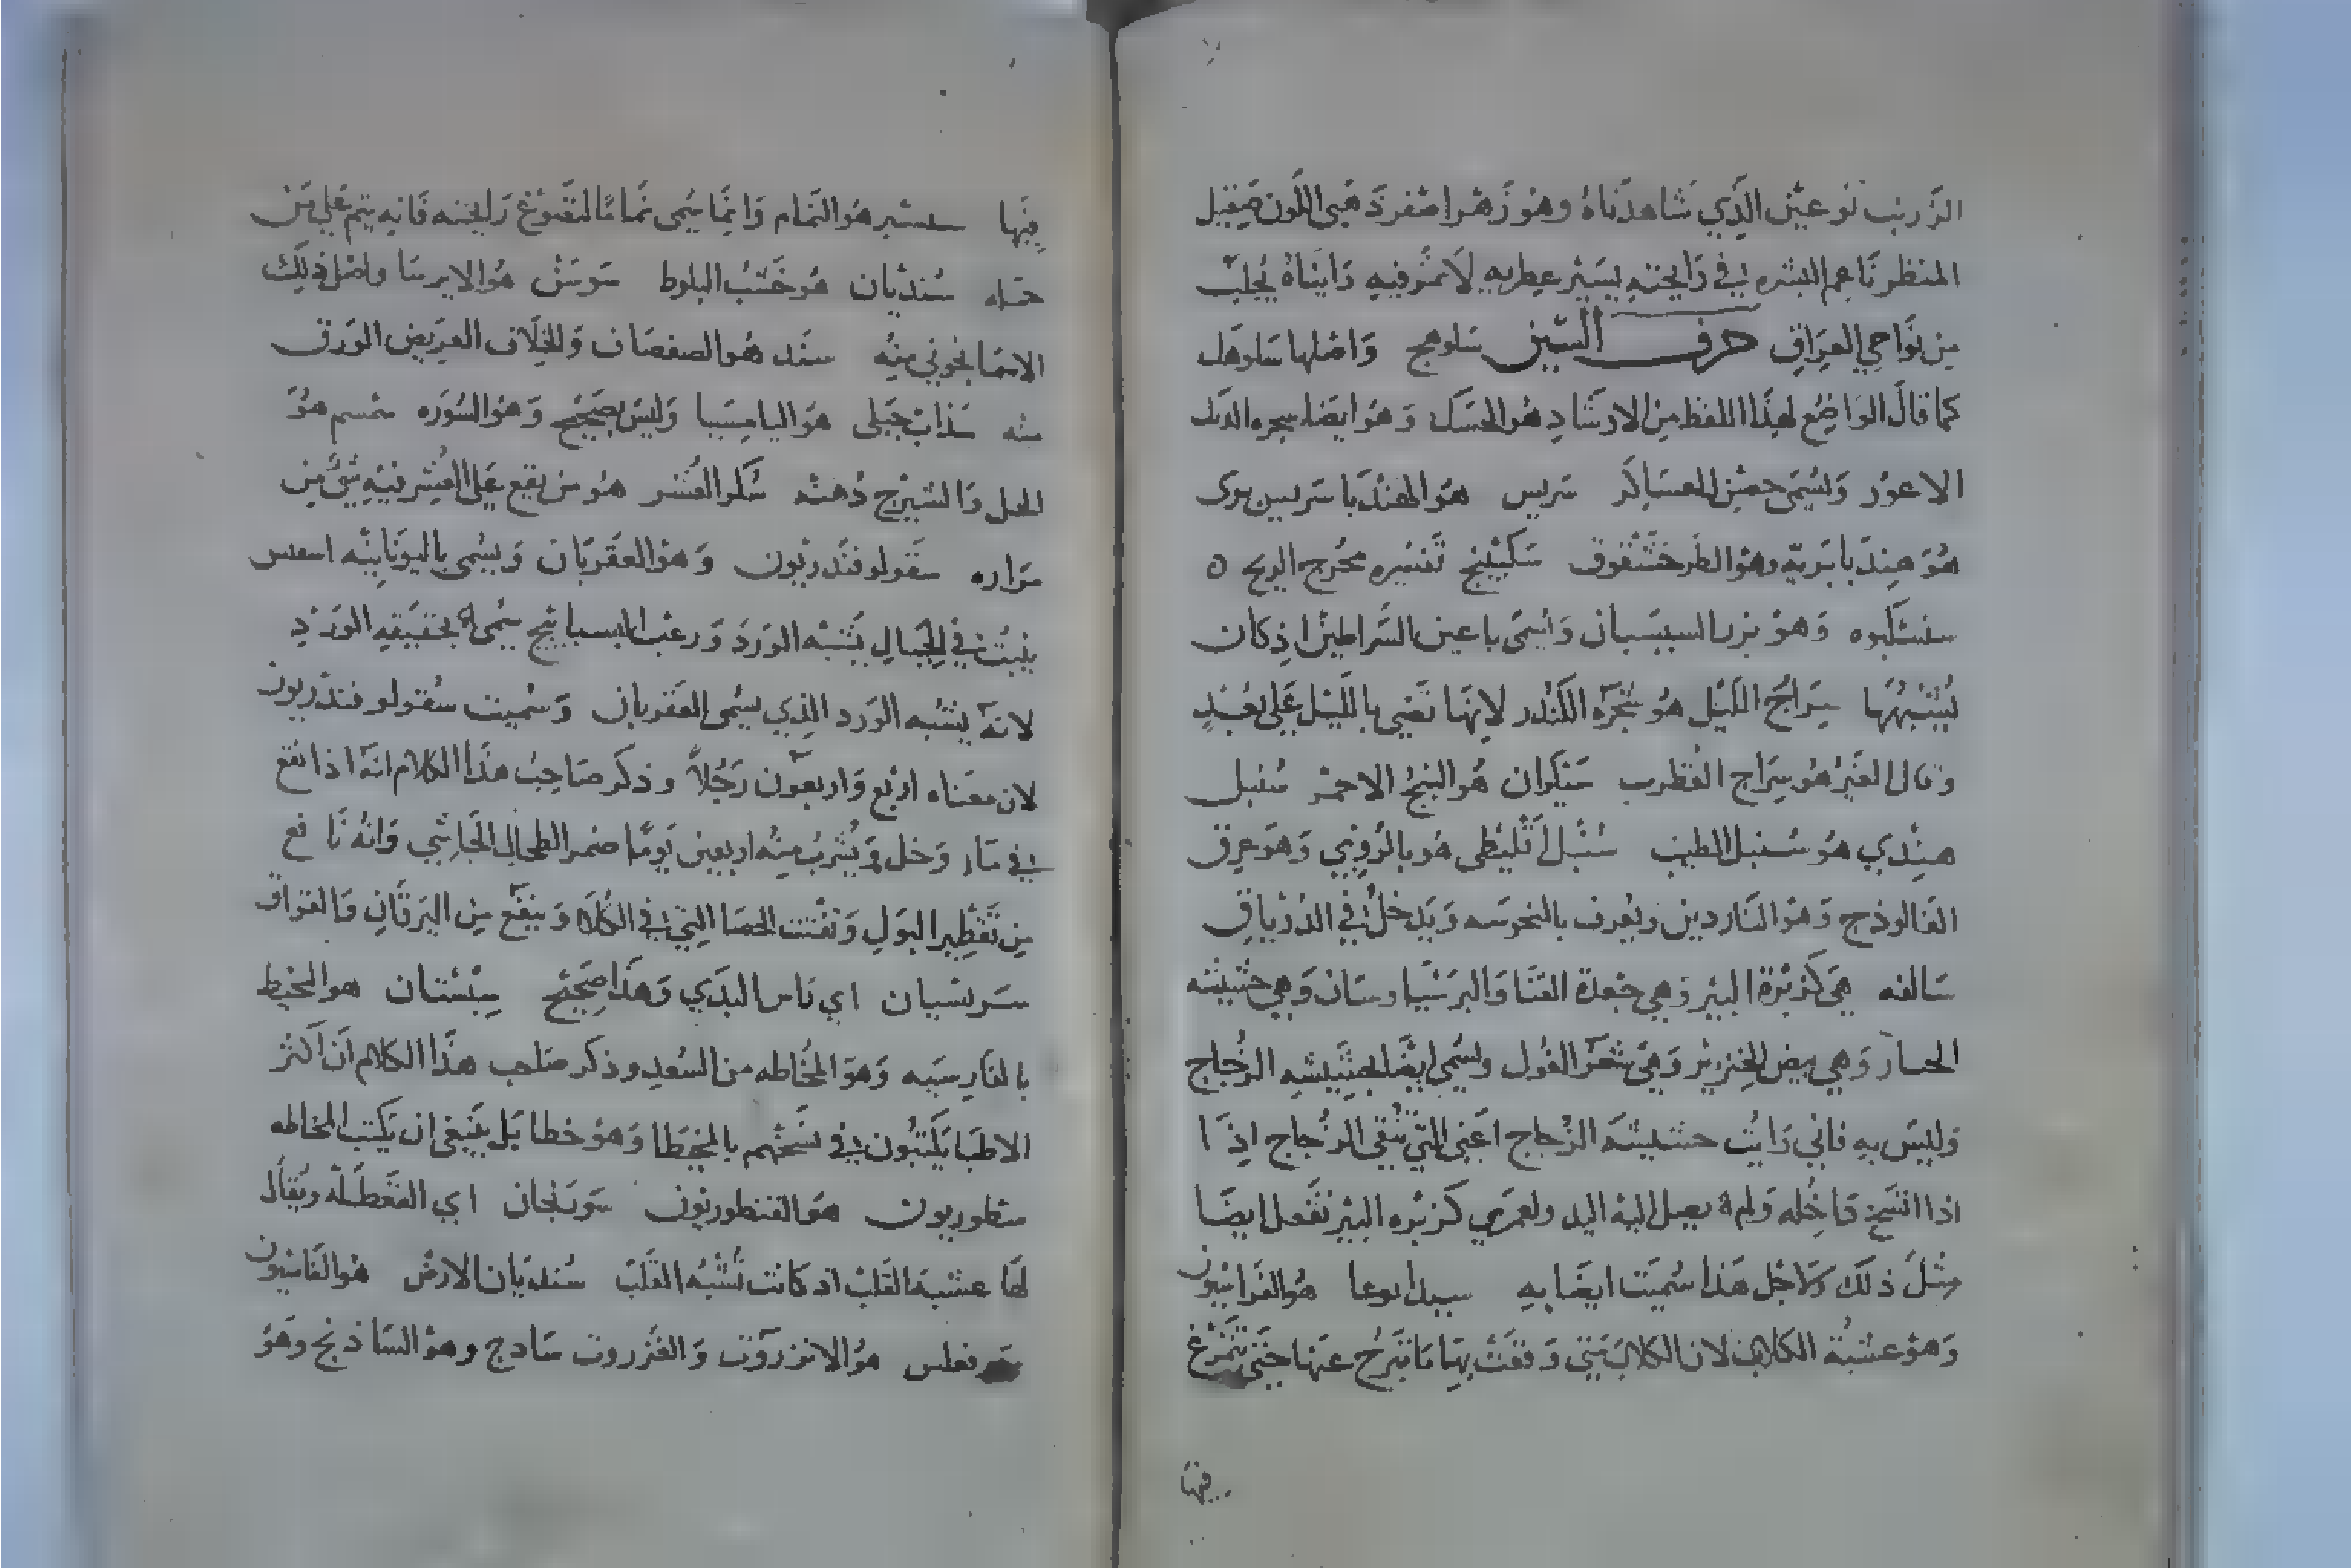 الزرنب نوعين الذي شاهدناه وهو زهر اصفر ذهبي اللون صقيل
المنظر ناعم البشره في رايحته يسير عطريه لا ثمر فيه رايناه يجلب
من نواحي العراق حرف السين سلوهج واصلها سلوهل
كما قال الواضع لهذا اللفظ من الارشاد هو الحسك وهو ايضا سجره الديك
الاعور ويسمى حصن العساكر سريس هو الهندبا سريس بري
هو هندبا بريه وهو الطرخشقوق سكبينج تفسيره مخرج الريح ه
وهو بزر السيسبان ويسمى باعين السراطين اذ كان
يشبهها سراج الليل هو شجره الكندر لانها تضي بالليل على بعد
وقال الغير هو سراج القطرب سيكران هو البنج الاحمر سنبل
هندي هو سنبل الطيب سنبل اقليطى هو بالرومي وهو عرق
الفالوذج وهو الناردين ويعرف بالنجوسه ويدخل في الدرياق
سالفه هي كزبرة البير وهي جعدة القنا والبرشياوسان وهي حشيشه
الحمار وهي بيض الخنزير وهي شعر الغول ويسمى ايضا بحشيشه الزجاج
وليس به فاني رايت حشيشه الزجاج اعني التي تنقي الزجاج اذا
اذا اتسخ داخله ولم يصل اليه اليد ولعمري كزبره البير تفعل ايضا
مثل ذلك ولاجل هذا سميت ايضا به هو الفراسيون
وهو عشبة الكلاب لان الكلاب متى وقفت بها ما تبرح عنها حتى تتمرغ
فيها
فيها سيسنبر هو النمام وانما يسمى نماما لتضوع رايحته فانه ينم على من
حمله سنديان هو خشب البلوط سوسن هو الايرسا واصل ذلك
الاسمانجوني منه سند هو الصفصاف والخلاف العريض الورق
منه سذاب جبلى هو اليامسيا وليس بصحيح وهو السوره سمسم هو
الحل والشيرج دهنه سكر العشر هو من يقع على العشر فيه شي من
مراره سقولوفندريون وهو العقربان ويسمى باليونانيه
ينبت في الجبال يشبه الورد يسمى بحقيقه الورد
لانه يشبه الورد الذي يسمى العقربان وسميت سقولوفندريون
لان معناه اربع واربعون رجلا وذكر صاحب هذا الكلام انه اذا نقع
في ماء وخل ويشرب منه اربعين يوما ضمر الطحال الجاشي وانه نافع
من تقطير البول وتفتت الحصا التي في الكلا وينفع من اليرقان والفواق
اي ناس البدي وهذا صحيح سبستان هو المخيط
بالفارسيه وهو المخاطه من السعيد وذكر صاحب هذا الكلام ان اكثر
الاطبا يكتبون في نسختهم بالمخيطا وهو خطا بل ينبغي ان يكتب المخاطه
سنطوريون هو القنطوريون سورنجان اي القعطله ويقال
لها عشبه القلب اذ كانت تشبه القلب سنديان الارض هو الفاسيون
هو الانزروت والعنزروت سادج وهو الساذنج وهو